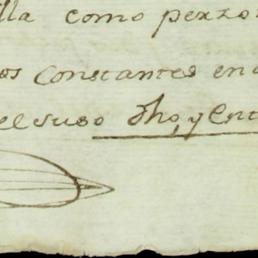 lla como perzo
os constantes en
el suso dho, y ent